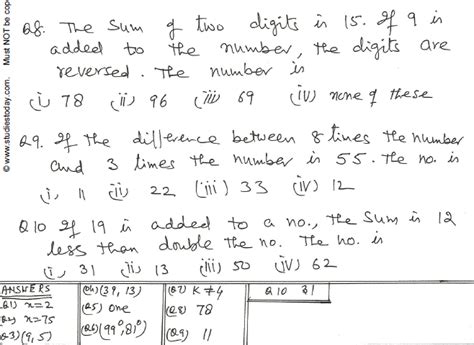 Q8. The sum of two digits is 15. If 9 is
added to the number, the digits are
reversed. The number is
(i) 78 (ii) 96 (iii) 69 (iv) none of these
Q9. If the difference between 8 times the number
and 3 times the number is 55. The no. is
(i) 11 (ii) 22 (iii) 33 (iv) 12
Q10 If 19 is added to a no., the sum is 12
less than double the no. The no. is
(i) 31 (ii) 13 (iii) 50 (iv) 62
ANSWERS
Q1) x=2
Q2) x=75
Q3) (9,5)
Q4) (39, 13)
Q5) one
Q6) (99°, 81°)
Q7) K≠4
Q8) 78
Q9) 11
Q10 31
© www.studiestoday.com. Must NOT be cop